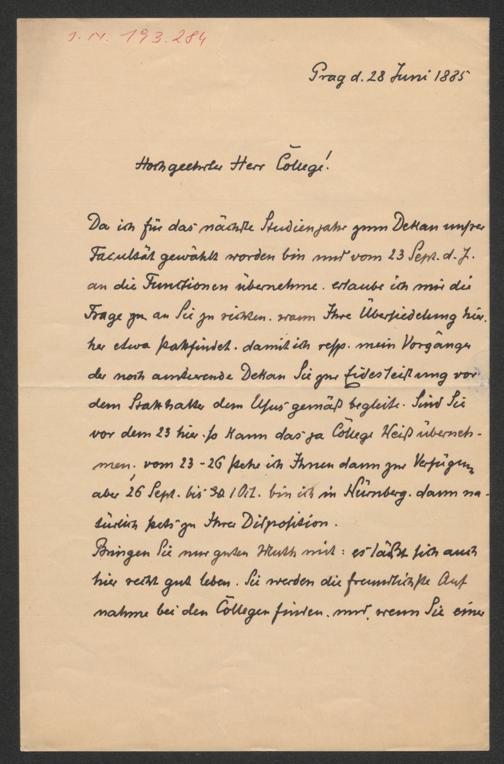 J. N. 193.284
Prag d. 28 Juni 1885
Hochgeehrter Herr College!
Da ich für das nächste Studienjahr zum Dekan unsrer
Facultät gewählt worden bin und vom 23 Sept. d. J.
an die Functionen übernehme. erlaube ich mir die
Frage zu an Sie zu richten. wann Ihre Übersiedelung hier.
her etwa stattfindet. damit ich resp. mein Vorgänger
der noch amtierende Dekan Sie zur Eidesleistung vor
dem Statthalter dem Usus gemäß begleite. Sind Sie
vor dem 23 hier. so kann das ja College Weiß überneh-
men. vom 23-26 stehe ich Ihnen dann zur Verfügung
aber 26 Sept. bis 1 Oct. bin ich in Nürnberg. dann na-
türlich stets zu Ihrer Disposition.
Bringen Sie nur guten Muth mit: es läßt sich auch
hier recht gut leben. Sie werden die freundlichste Auf
nahme bei den Collegen finden. und, wenn Sie einer